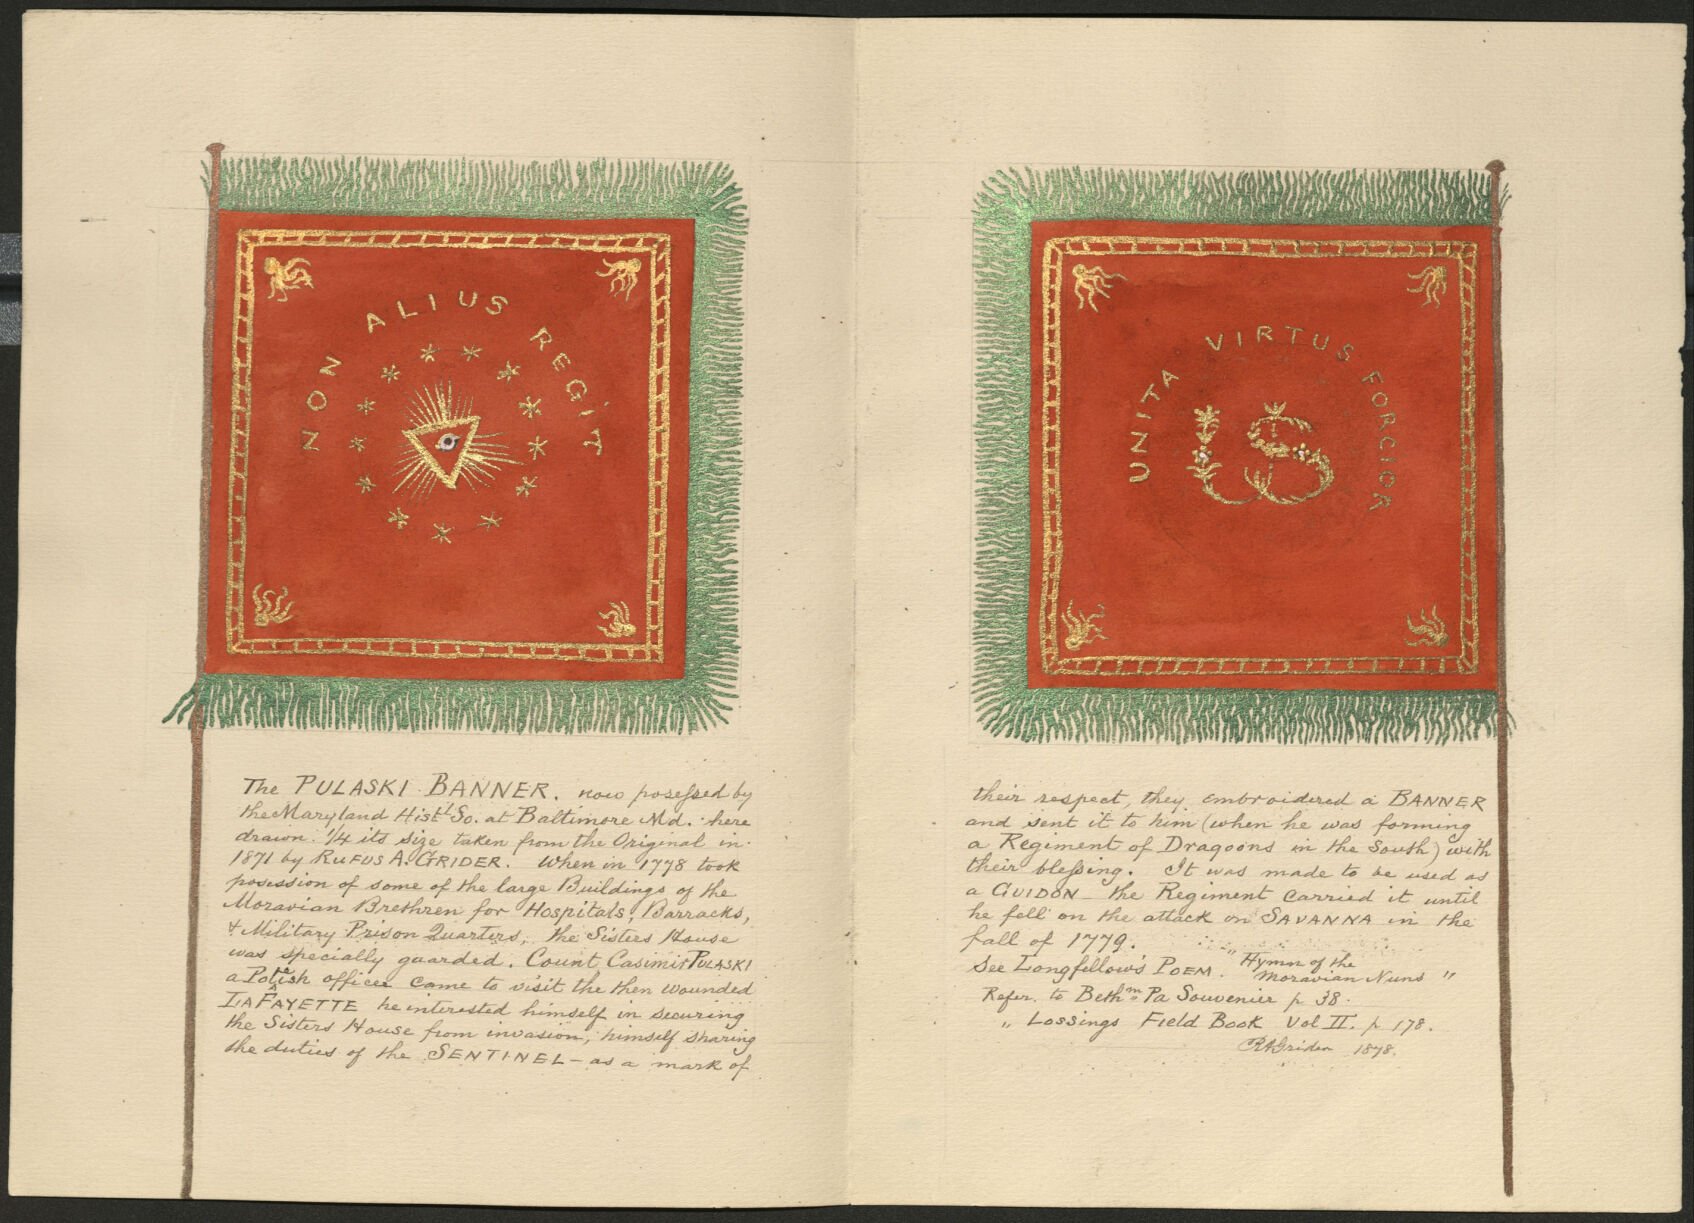 NON ALIUS REGIT
The PULASKI BANNER. now posessed by
the Maryland Histl So. at Baltimore Md. here
drawn 1/4 its size taken from the Original in
1871 by RUFUS A. GRIDER. When in 1778 took
posession of some of the large Buildings of the
Moravian Brethren for Hospitals, Barracks,
& Military Prison Quarters, the Sisters House
was specially guarded. Count Casimir PULASKI
a Polish officer came to visit the then wounded
LAFAYETTE he interested himself in securing
the Sisters House from invasion, himself sharing
the duties of the SENTINEL - as a mark of
UNITA VIRTUS FORCIOR
US
their respect, they embroidered a BANNER
and sent it to him (when he was forming
a Regiment of Dragoons in the South) with
their blessing. It was made to be used as
a GUIDON - the Regiment carried it until
he fell on the attack on SAVANNA in the
fall of 1779.
See Longfellow's POEM. "Hymn of the
Moravian Nuns"
Refer. to Bethm Pa Souvenier p 38.
" Lossings Field Book Vol II. p 178.
RAGrider 1878.